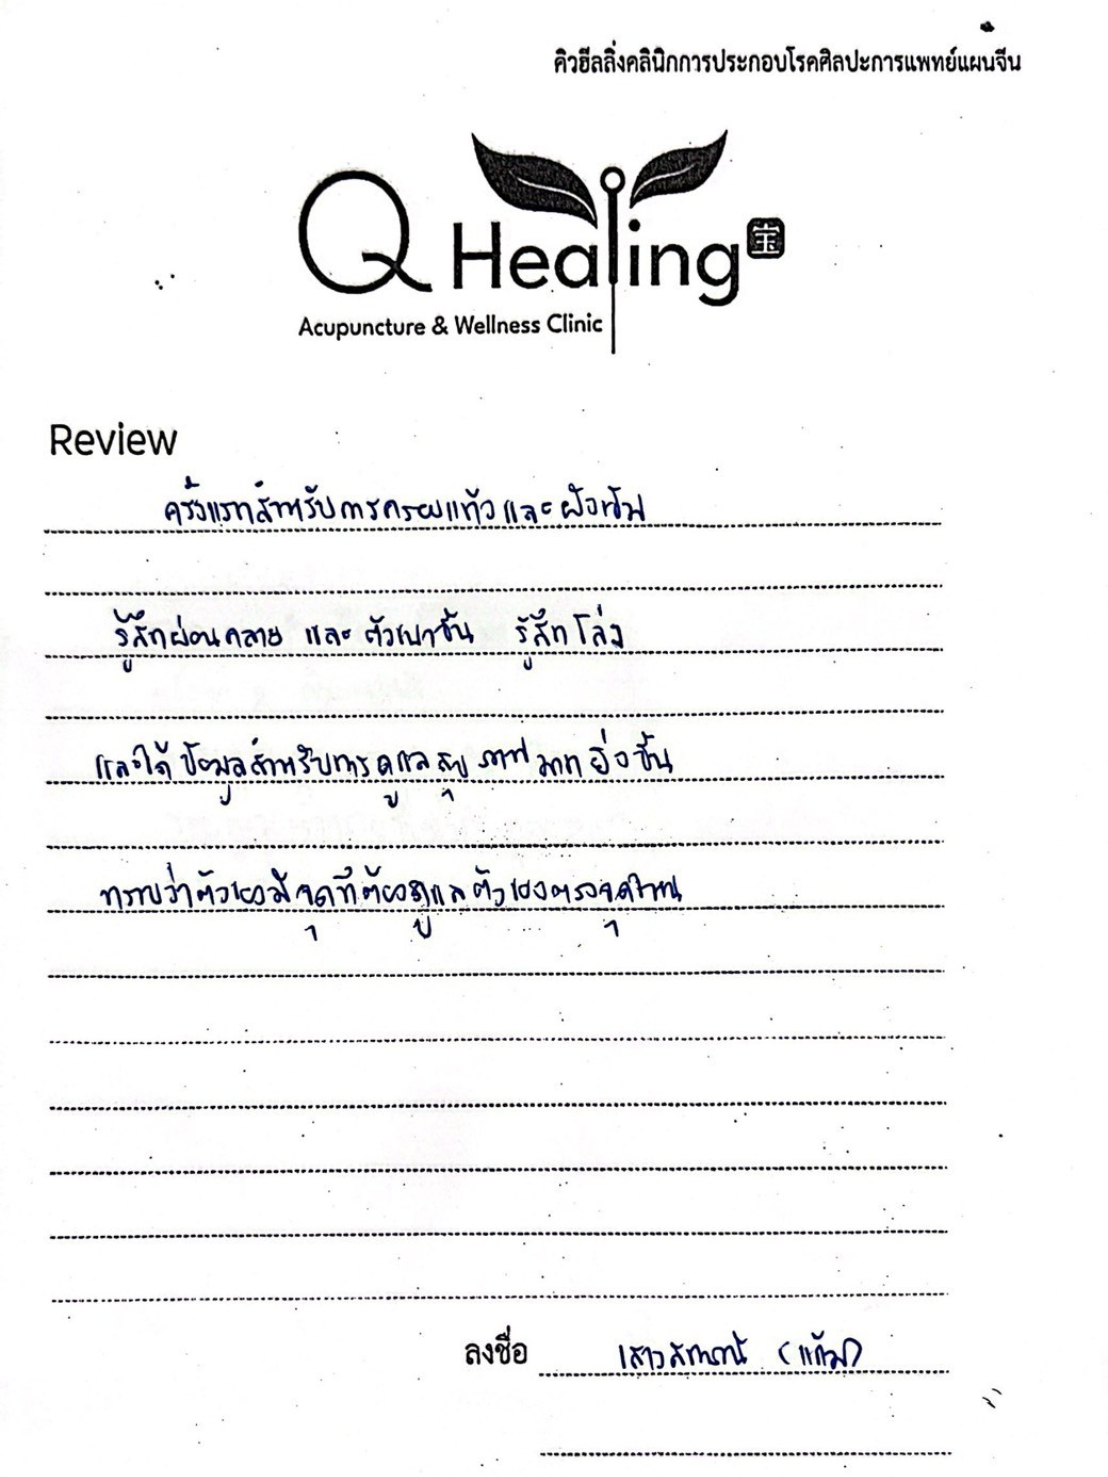 คิวฮีลลิ่งคลินิกการประกอบโรคศิลปะการแพทย์แผนจีน
Q Healing 宝
Acupuncture & Wellness Clinic
Review
ครั้งแรกสำหรับการครอบแก้วและฝังเข็ม
รู้สึกผ่อนคลาย และ ตัวเบาขึ้น รู้สึกโล่ง
และได้ข้อมูลสำหรับการดูแลสุขภาพมากยิ่งขึ้น
ทราบว่าตัวเองมีจุดที่ต้องดูแลตัวเองตรงจุดไหน
ลงชื่อ (แก้ม)